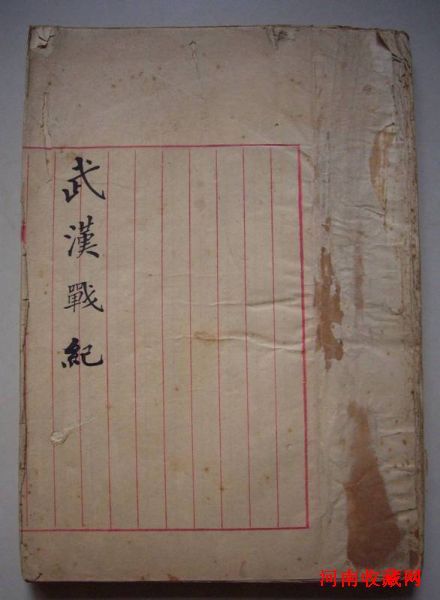 武漢戰紀
河南收藏网